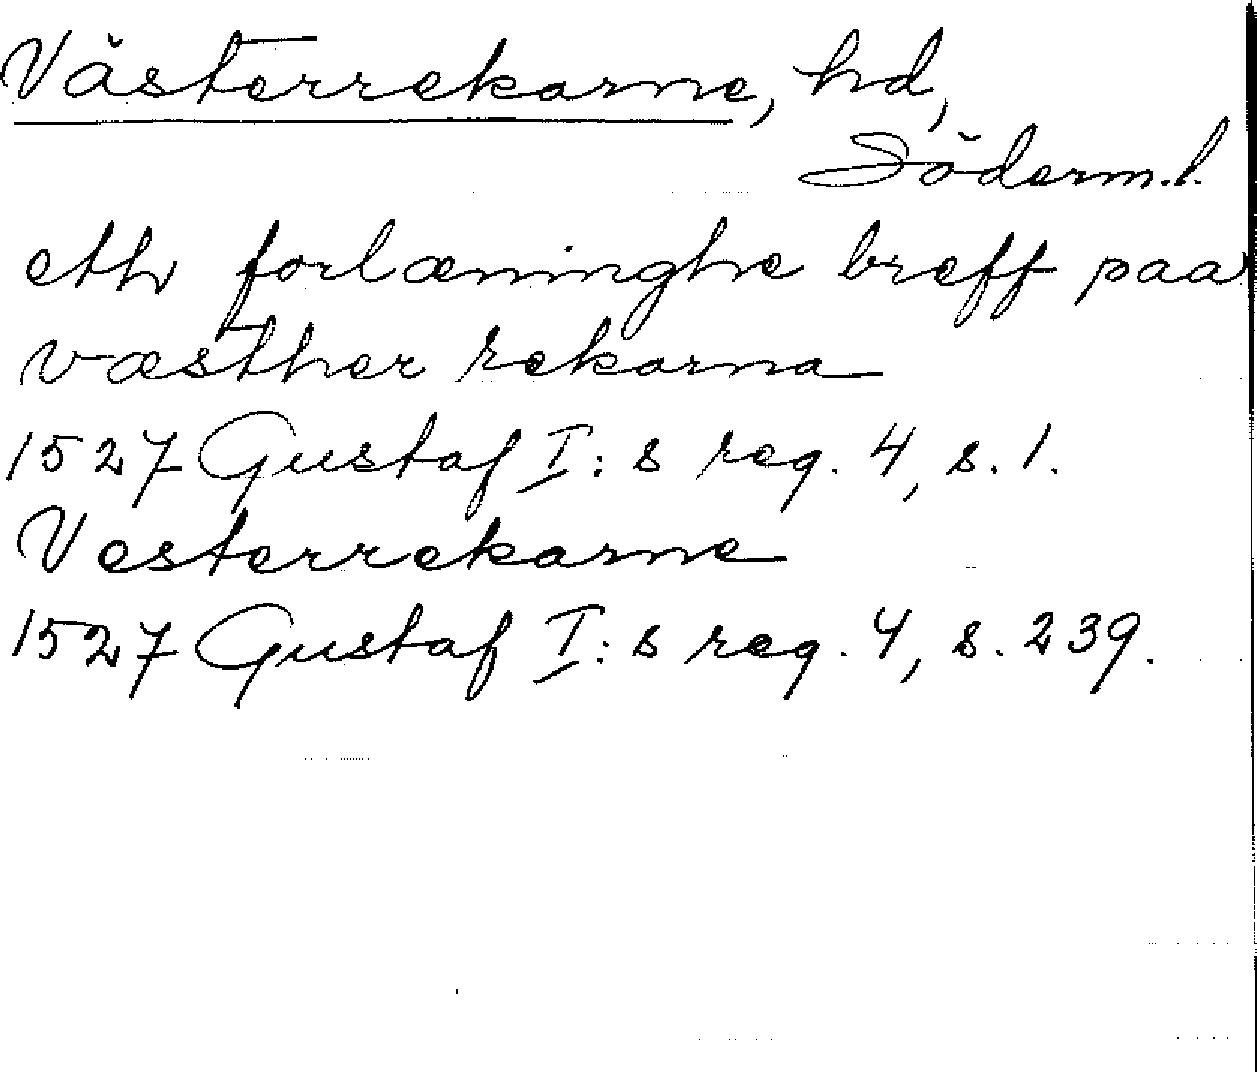 Västerrekarne, hd,
Söderm.l.
eth forlæninghe breff paa
væsther rekarna
1527 Gustaf I:s reg. 4, s. 1.
Vesterrekarne
1527 Gustaf I:s reg. 4, s. 239.